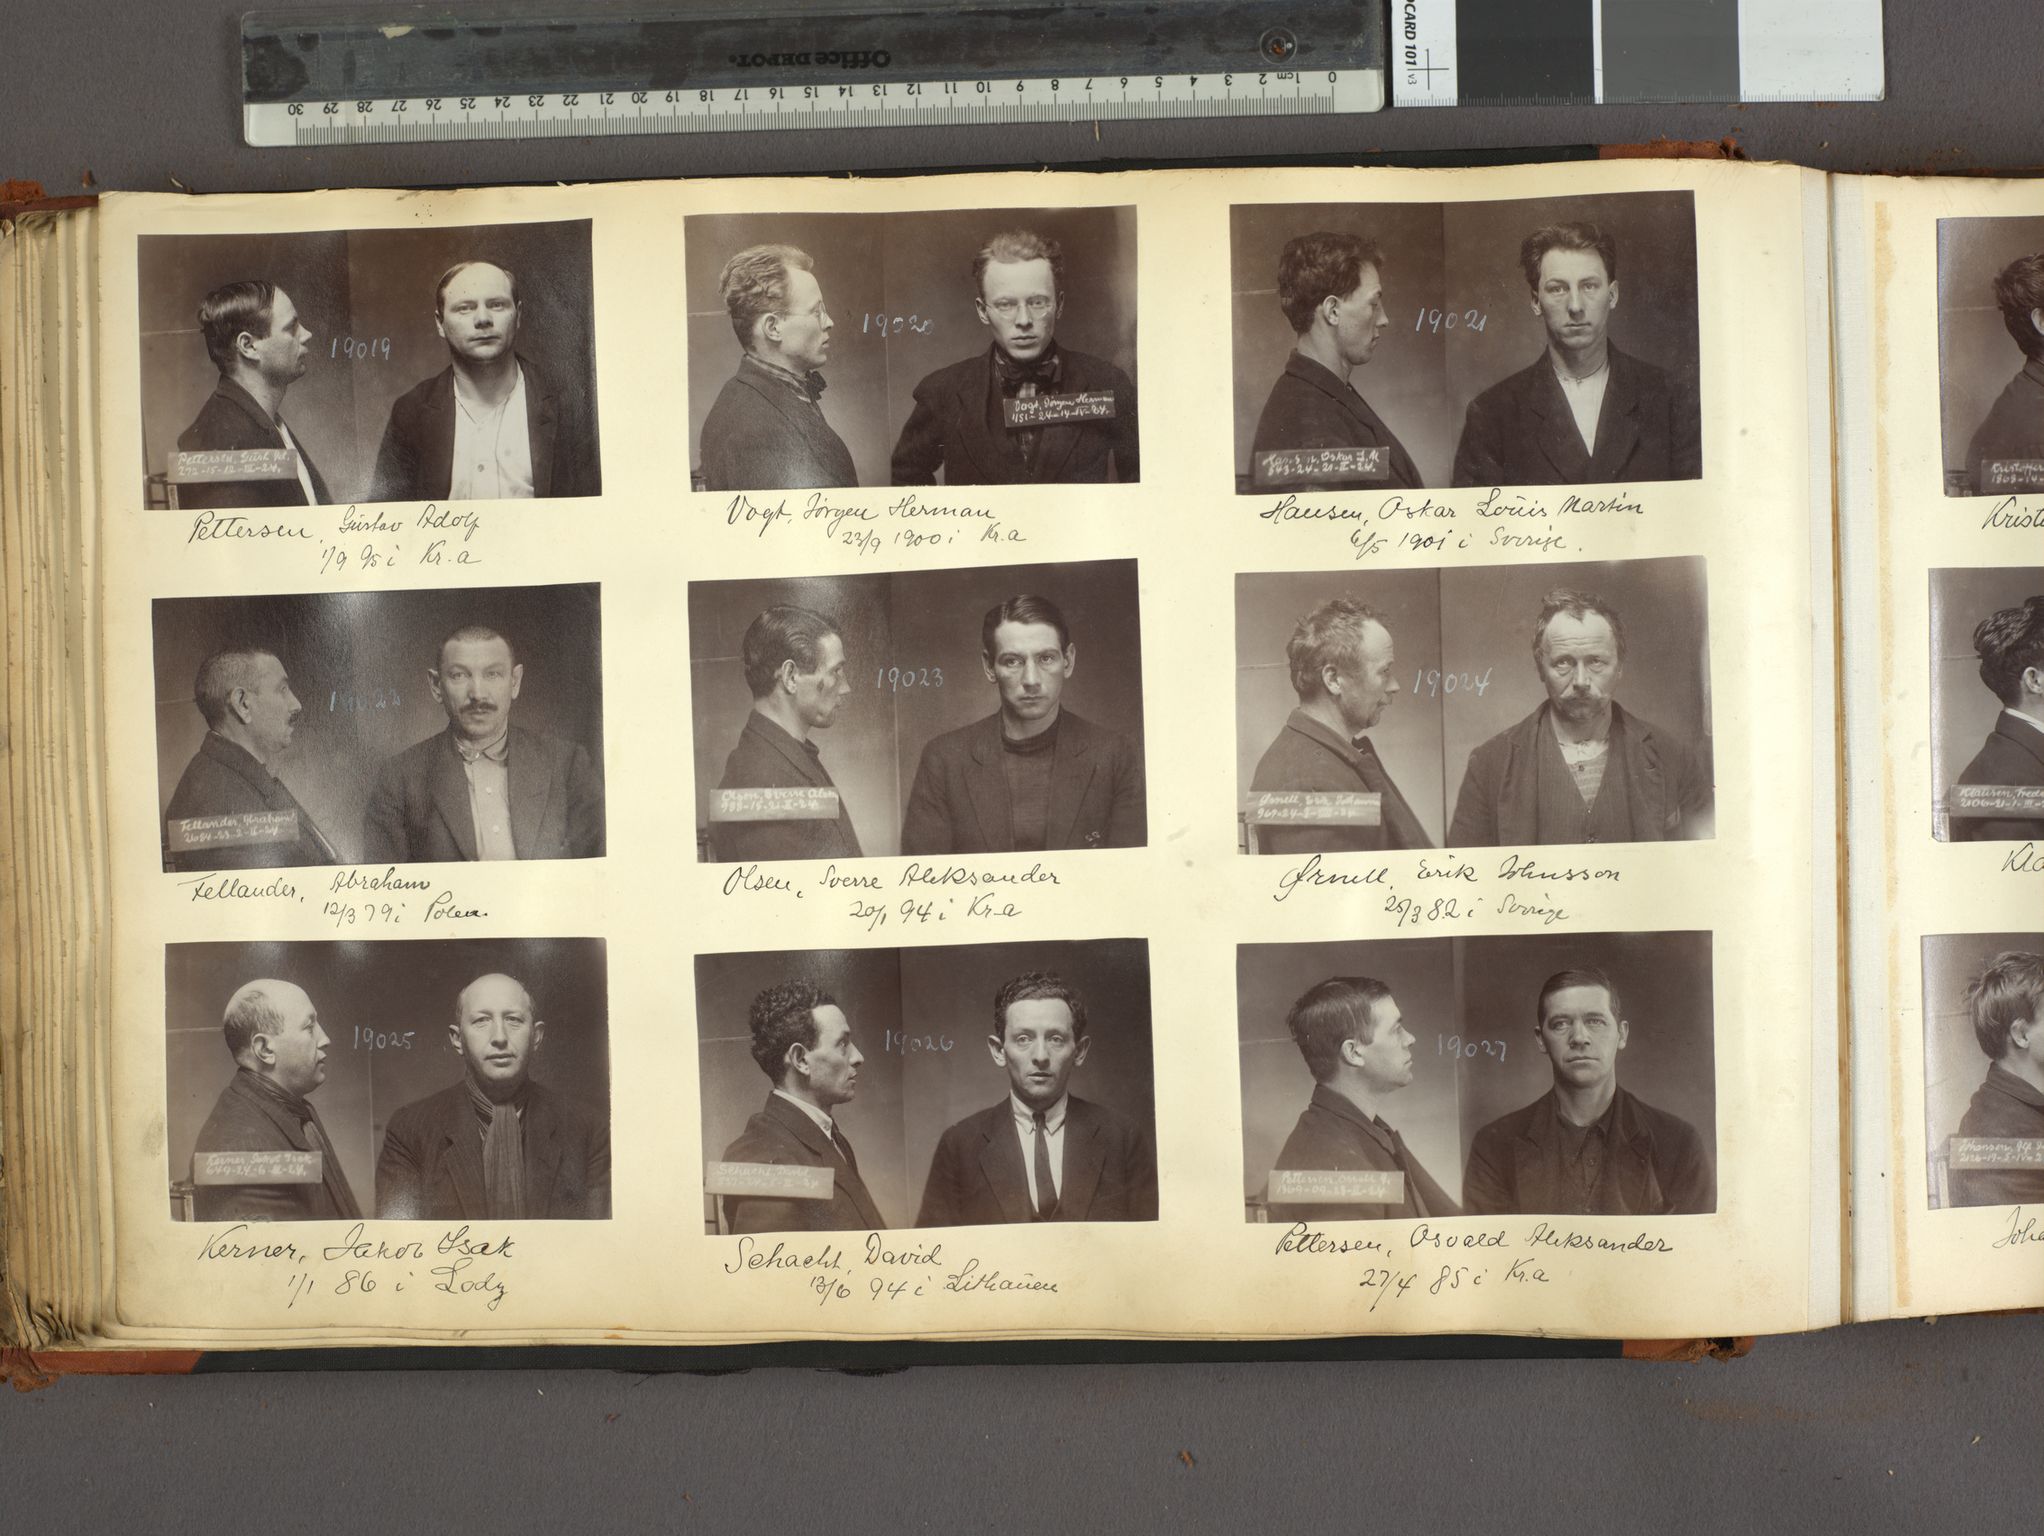 Office DEPOT.
30 29 28 27 26 25 24 23 22 21 20 19 18 17 16 15 14 13 12 11 10 9 8 7 6 5 4 3 2 1cm 0
CARD 101 v3
19019
Pettersen, Gust. Ad.
272-15-12-III-24.
Pettersen, Gustav Adolf
1/9 95 i Kr.a
19020
Vogt, Jørgen Herman
451-24-14-IV-24.
Vogt, Jørgen Herman
23/9 1900 i Kr.a
19021
Hansen, Oskar L. M
543-24-21-II-24.
Hansen, Oskar Louis Martin
6/5 1901 i Sverige.
Krist
19022
Fellander, Abraham
2684-23-2-II-24.
Fellander, Abraham
12/3 79 i Polen.
19023
Olsen, Sverre Aleks
988-15-21-II-24.
Olsen, Sverre Aleksander
20/1 94 i Kr.a
19024
Ørnell, Erik Johnsson
969-24-1-III-24.
Ørnell, Erik Johnsson
25/3 82 i Sverige
Klausen, Frede
Kla
19025
Kerner, Jakob Isak
644-24-6-III-24.
Kerner, Jakob Isak
1/1 86 i Lodz
19026
Schacht, David
Schacht, David
13/6 94 i Lithauen
19027
Pettersen, Osvald A.
1309-09-23-II-24.
Pettersen, Osvald Aleksander
27/4 85 i Kr.a
Joha